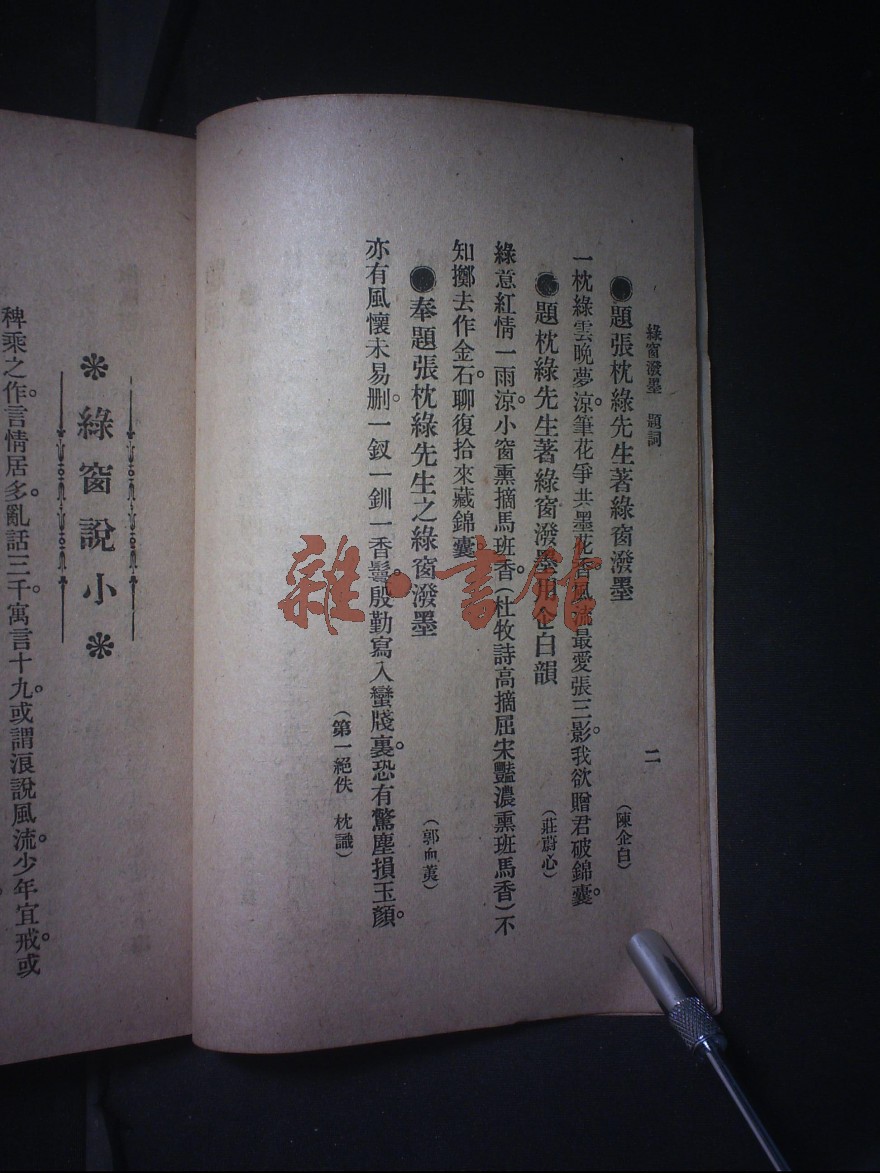 綠窗潑墨 題詞 二
●題張枕綠先生著綠窗潑墨 (陳企白)
一枕綠雲晚夢涼。筆花爭共墨花香。風流最愛張三影。我欲贈君破錦囊。
●題枕綠先生著綠窗潑墨用企白韻 (莊蔚心)
綠意紅情一雨涼。小窗熏摘馬班香。(杜牧詩高摘屈宋豔濃熏班馬香)不
知擲去作金石。聊復拾來藏錦囊。
●奉題張枕綠先生之綠窗潑墨 (郭血荑)
亦有風懷未易刪。一釵一釧一香鬟。殷勤寫入蠻牋裏。恐有驚塵損玉顏。
(第一絕佚 枕識)
綠窗說小
稗乘之作。言情居多。亂話三千。寓言十九。或謂浪說風流。少年宜戒。或
雜·書館